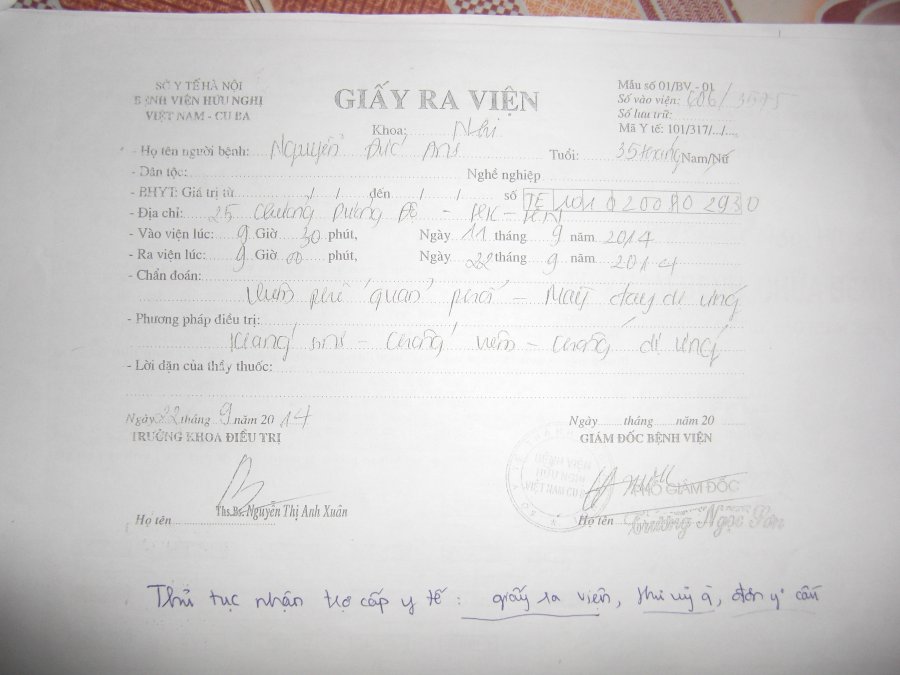 SỞ Y TẾ HÀ NỘI
BỆNH VIỆN HỮU NGHỊ
VIỆT NAM - CU BA
GIẤY RA VIỆN
Khoa: Nhi
Mẫu số 01/BV - 01
Số vào viện: 606/3595
Số lưu trữ:
Mã Y tế: 101/317/.../...
- Họ tên người bệnh: Nguyễn Đức Anh Tuổi: 35 tháng Nam/Nữ
- Dân tộc: Nghề nghiệp
- BHYT: Giá trị từ / / đến / / số TE 101 0200802930
- Địa chỉ: 25 Chương Dương Độ - HK - HN
- Vào viện lúc: 9 Giờ 30 phút, Ngày 11 tháng 9 năm 2014
- Ra viện lúc: 9 Giờ 00 phút, Ngày 22 tháng 9 năm 2014
- Chẩn đoán:
Viêm phế quản phổi - Mày đay dị ứng
- Phương pháp điều trị:
Kháng sinh - Chống viêm - Chống dị ứng
- Lời dặn của thầy thuốc:
Ngày 22 tháng 9 năm 2014
TRƯỞNG KHOA ĐIỀU TRỊ
Ngày......tháng......năm 20
GIÁM ĐỐC BỆNH VIỆN
BỆNH VIỆN
HỮU NGHỊ
VIỆT NAM CU BA
PHÓ GIÁM ĐỐC
Họ tên Ths.Bs. Nguyễn Thị Anh Xuân
Họ tên Trương Ngọc
Thủ tục nhận trợ cấp y tế: giấy ra viện, đơn